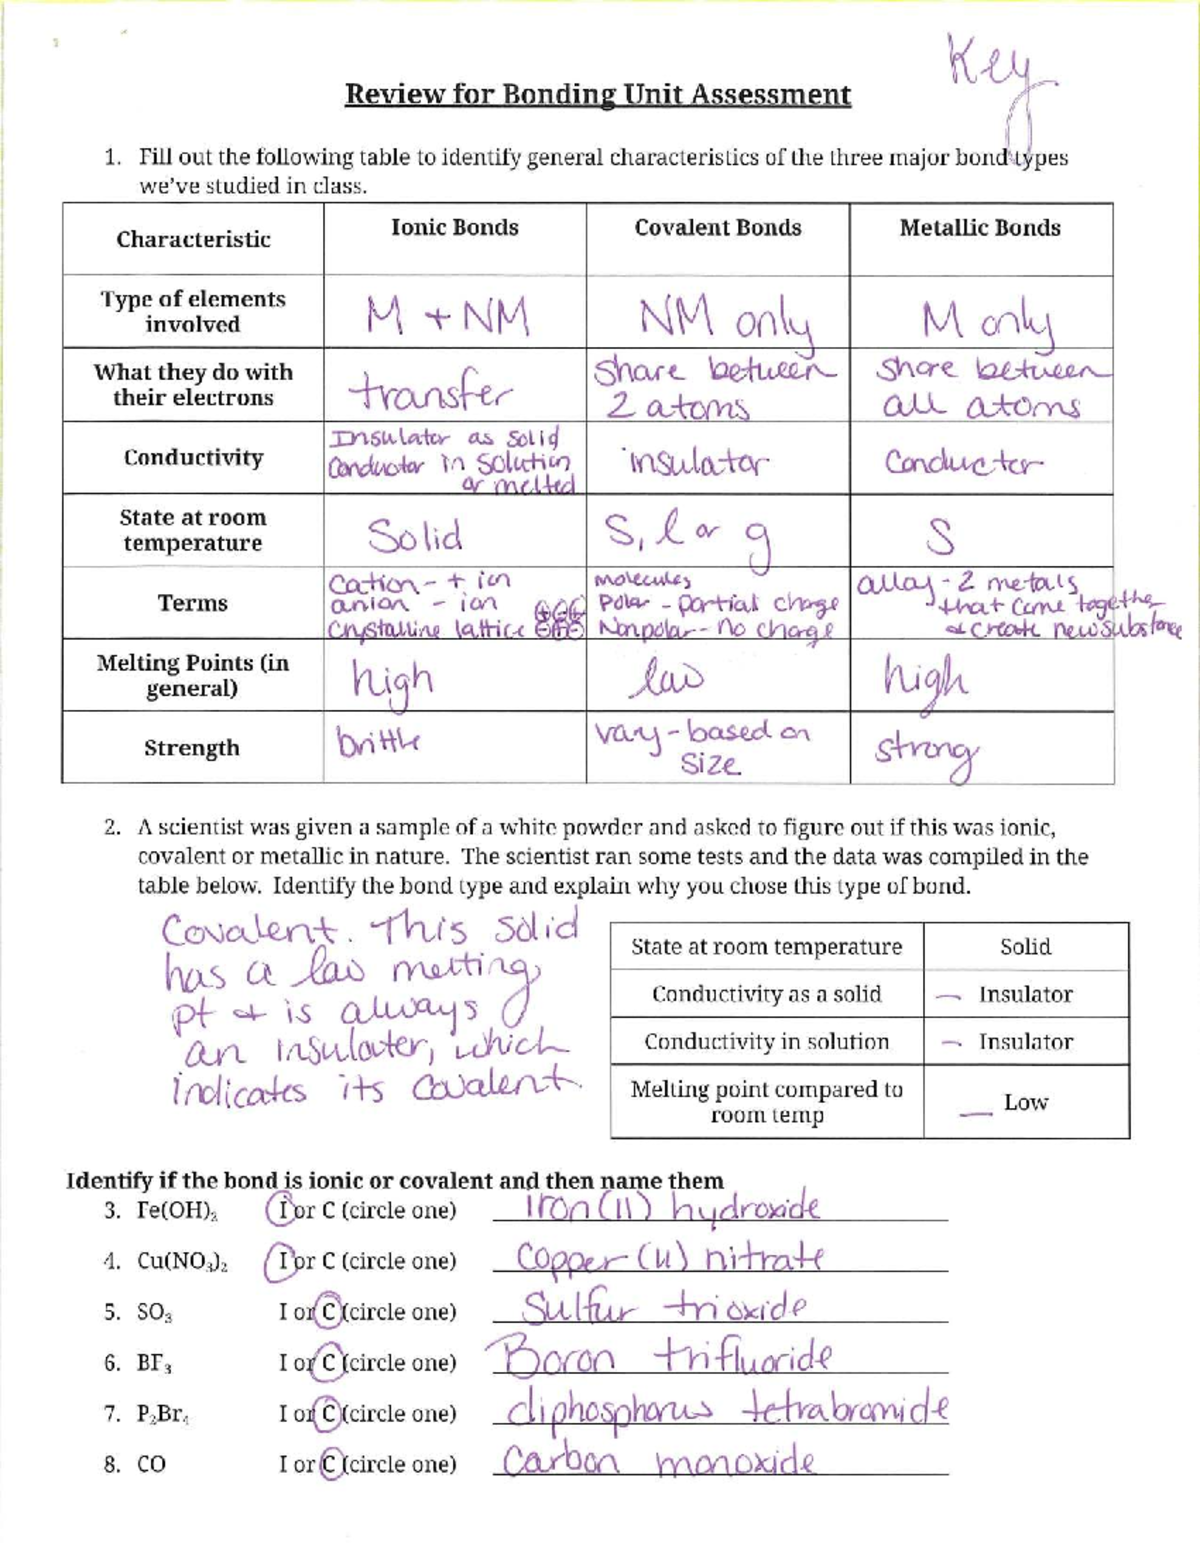 Key
Review for Bonding Unit Assessment
1. Fill out the following table to identify general characteristics of the three major bond types
we've studied in class.
Characteristic
Ionic Bonds
Covalent Bonds
Metallic Bonds
Type of elements
involved
M + NM
NM only
M only
What they do with
their electrons
transfer
Share between
2 atoms
Share between
all atoms
Conductivity
Insulator as solid
Conductor in solution
or melted
insulator
Conductor
State at room
temperature
Solid
S, l or g
S
Terms
Cation - + ion
anion - ion
Crystalline lattice
molecules
Polar - partial charge
Nonpolar - no charge
alloy - 2 metals
that come together
& create new substance
Melting Points (in
general)
high
low
high
Strength
brittle
vary - based on
size
strong
2. A scientist was given a sample of a white powder and asked to figure out if this was ionic,
covalent or metallic in nature. The scientist ran some tests and the data was compiled in the
table below. Identify the bond type and explain why you chose this type of bond.
Covalent. This solid
has a low melting
pt & is always
an insulater, which
indicates its covalent.
State at room temperature Solid
Conductivity as a solid — Insulator
Conductivity in solution — Insulator
Melting point compared to
room temp
— Low
Identify if the bond is ionic or covalent and then name them
3. Fe(OH)₂ I or C (circle one) Iron (II) hydroxide
4. Cu(NO₃)₂ I or C (circle one) Copper (II) nitrate
5. SO₃ I or C (circle one) Sulfur trioxide
6. BF₃ I or C (circle one) Boron trifluoride
7. P₂Br₄ I or C (circle one) diphosphorus tetrabromide
8. CO I or C (circle one) Carbon monoxide